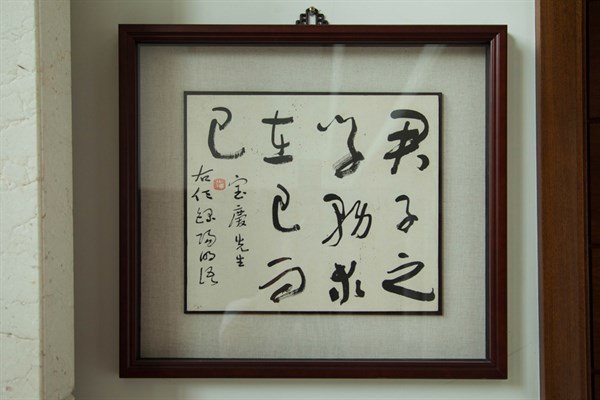 君子之
學務求
在己而
已
寶慶先生
右任錄陽明語